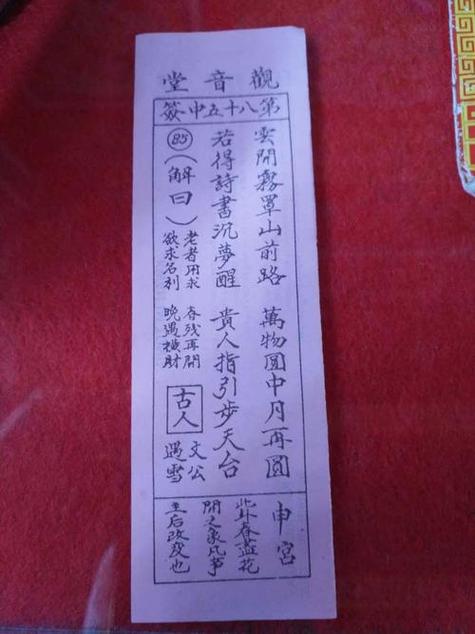 觀音堂
第八十五中簽
雲開霧罩山前路 萬物圓中月再圓
若得詩書沉夢醒 貴人指引步天台
85
(解曰)
老者用求 春残再開
欲求名利 晚遇横財
古人
文公
遇雪
申宮
此卦春盡花
開之象凡事